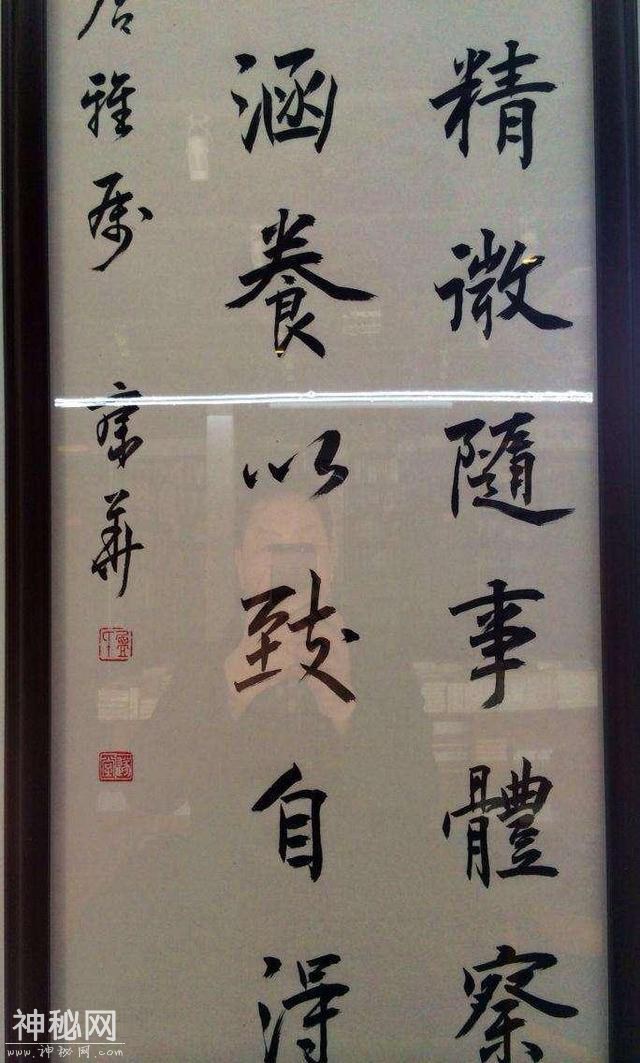 精微隨事體察
涵養以致自得
雅属
神秘网
www.神秘网.com